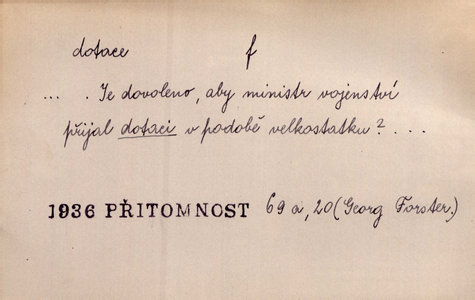 dotace f
... . Je dovoleno, aby ministr vojenství
přijal dotaci v podobě velkostatku? ...
1936 PŘITOMNOST 69 a, 20 (Georg Forster.)